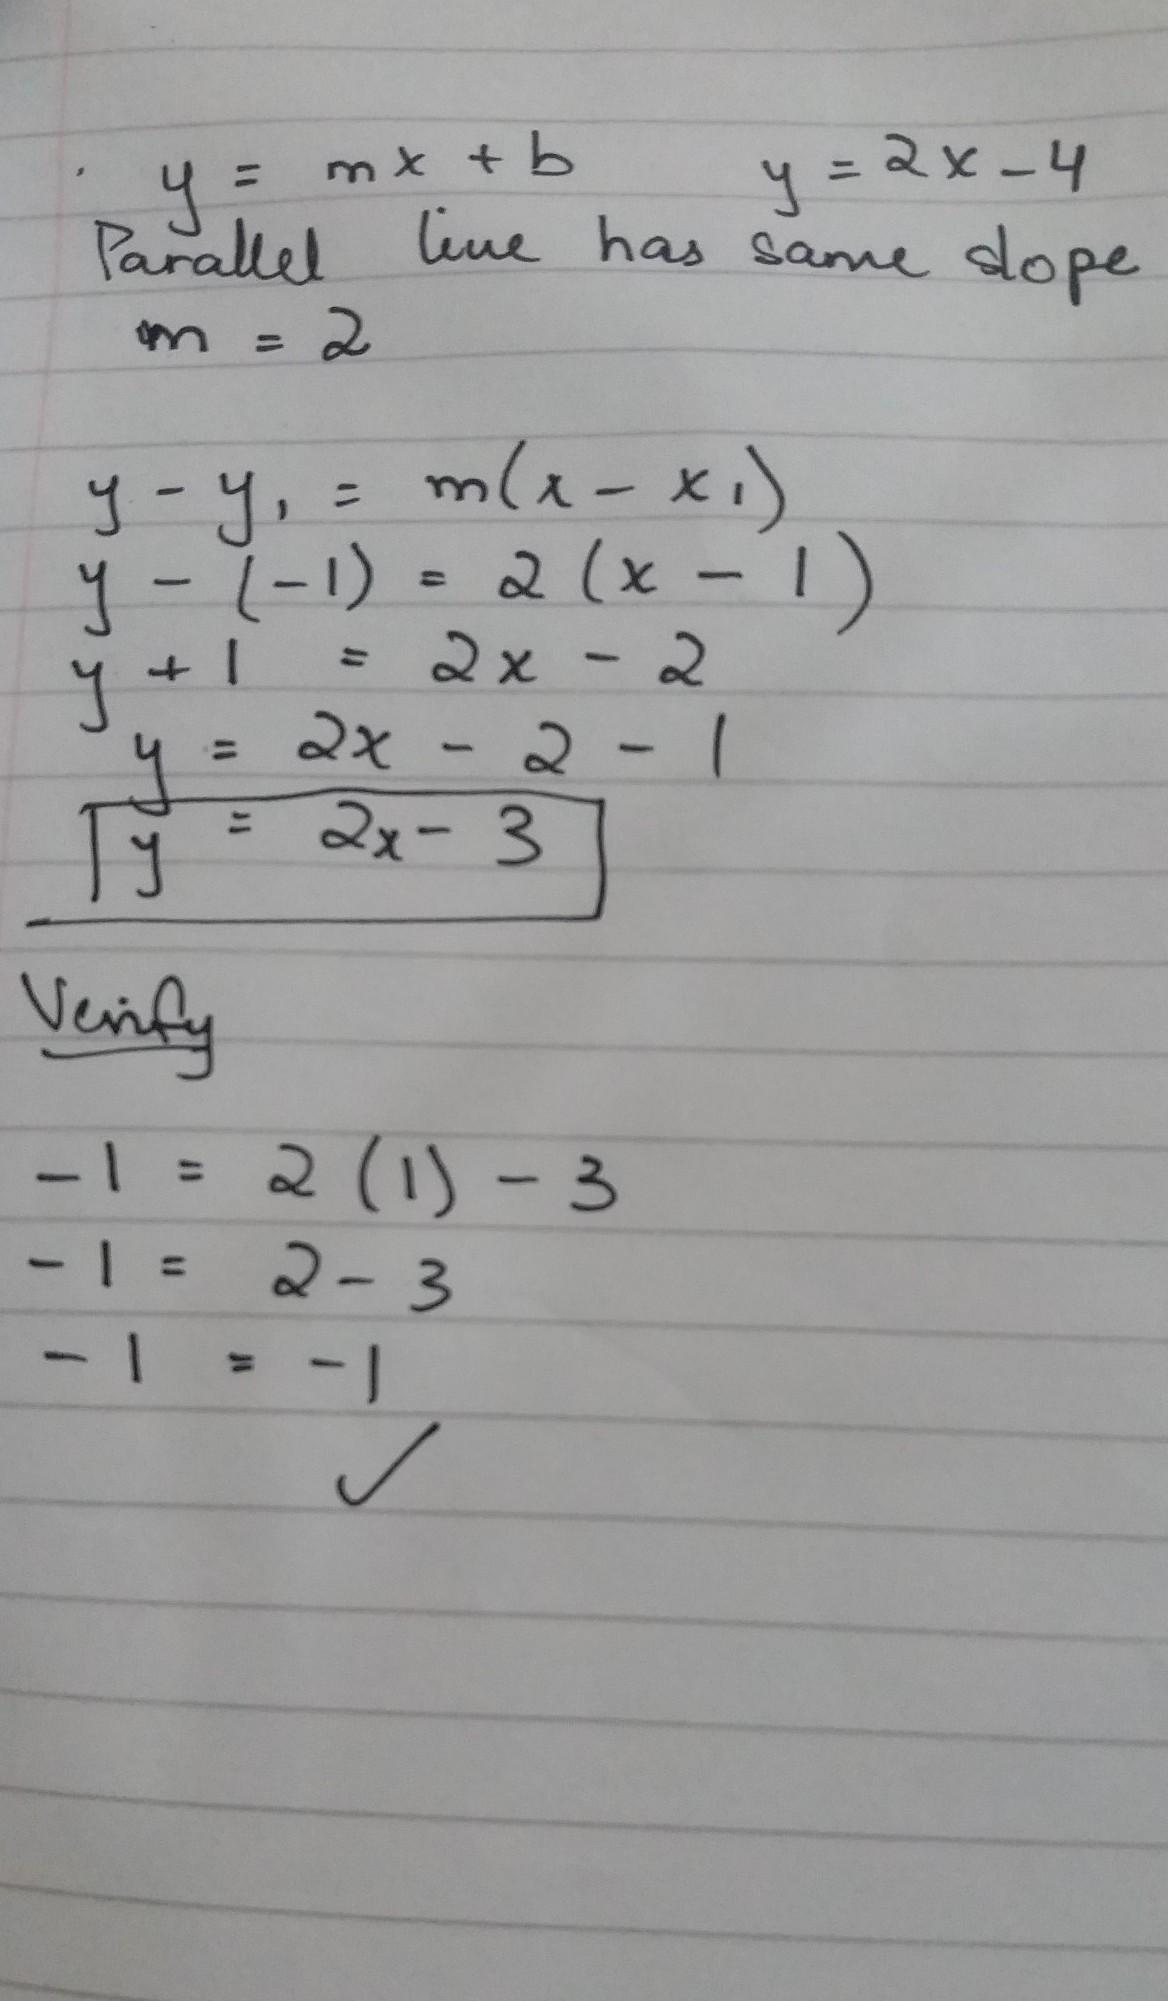 y = mx + b    y = 2x - 4
Parallel line has same slope
m = 2
y - y₁ = m(x - x₁)
y - (-1) = 2(x - 1)
y + 1 = 2x - 2
y = 2x - 2 - 1
y = 2x - 3
Verify
-1 = 2(1) - 3
-1 = 2 - 3
-1 = -1
✓